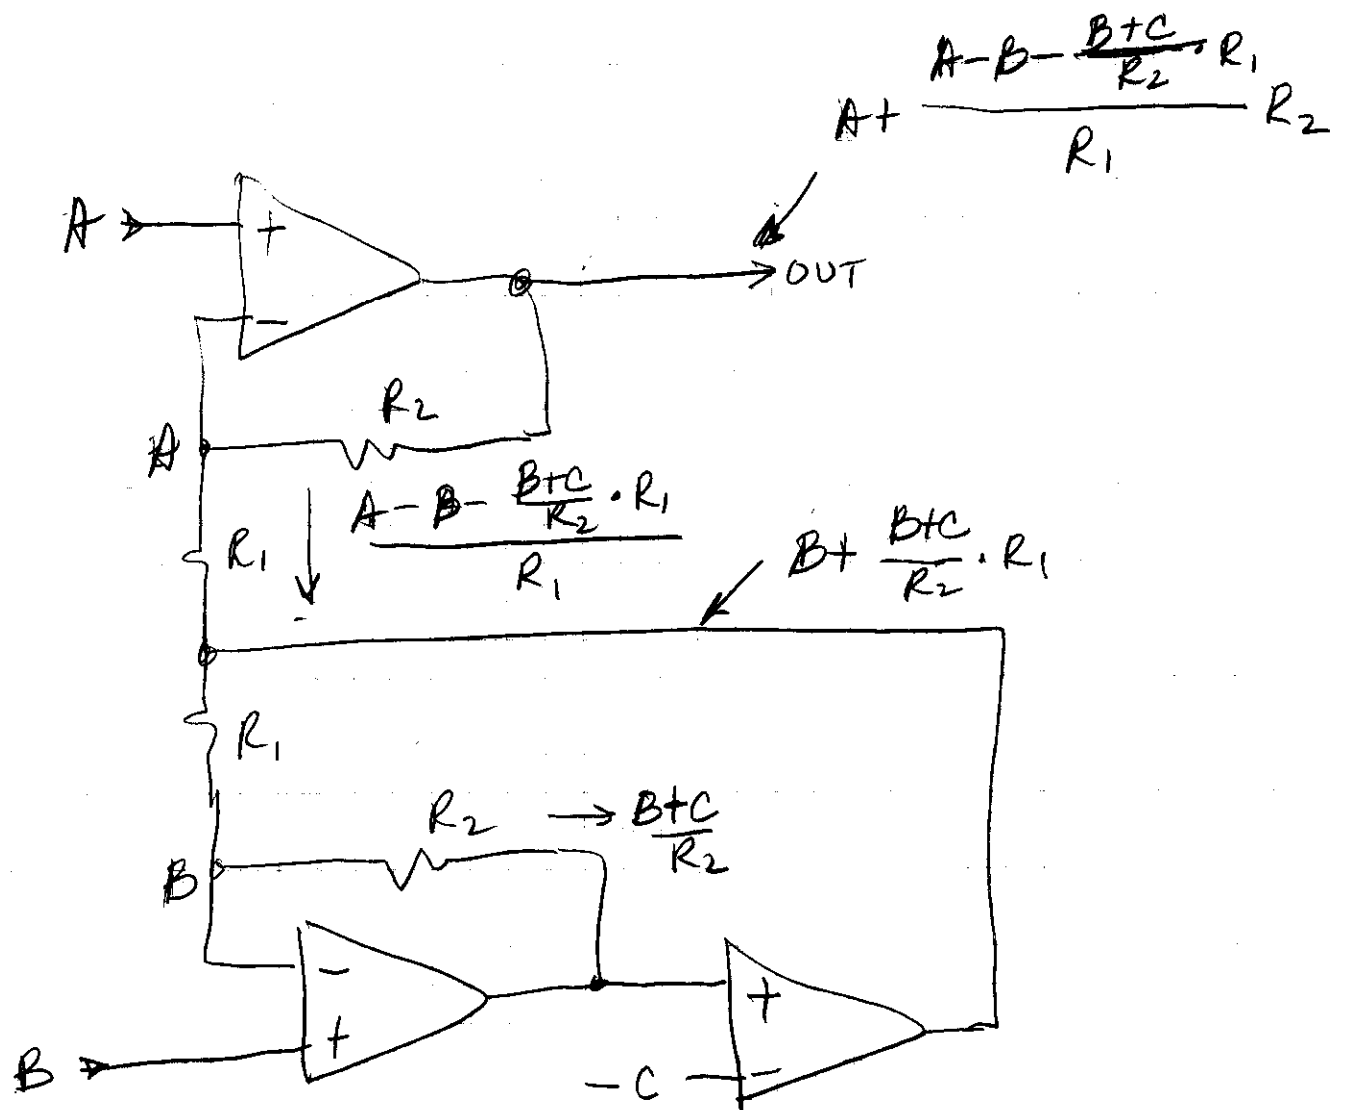 A + (A - B - (B+C)/R2 · R1)/R1 R2
A
+
OUT
-
R2
A
(A - B - (B+C)/R2 · R1)/R1
R1
B + (B+C)/R2 · R1
R1
R2 → (B+C)/R2
B
-
+
+
B
-C
-